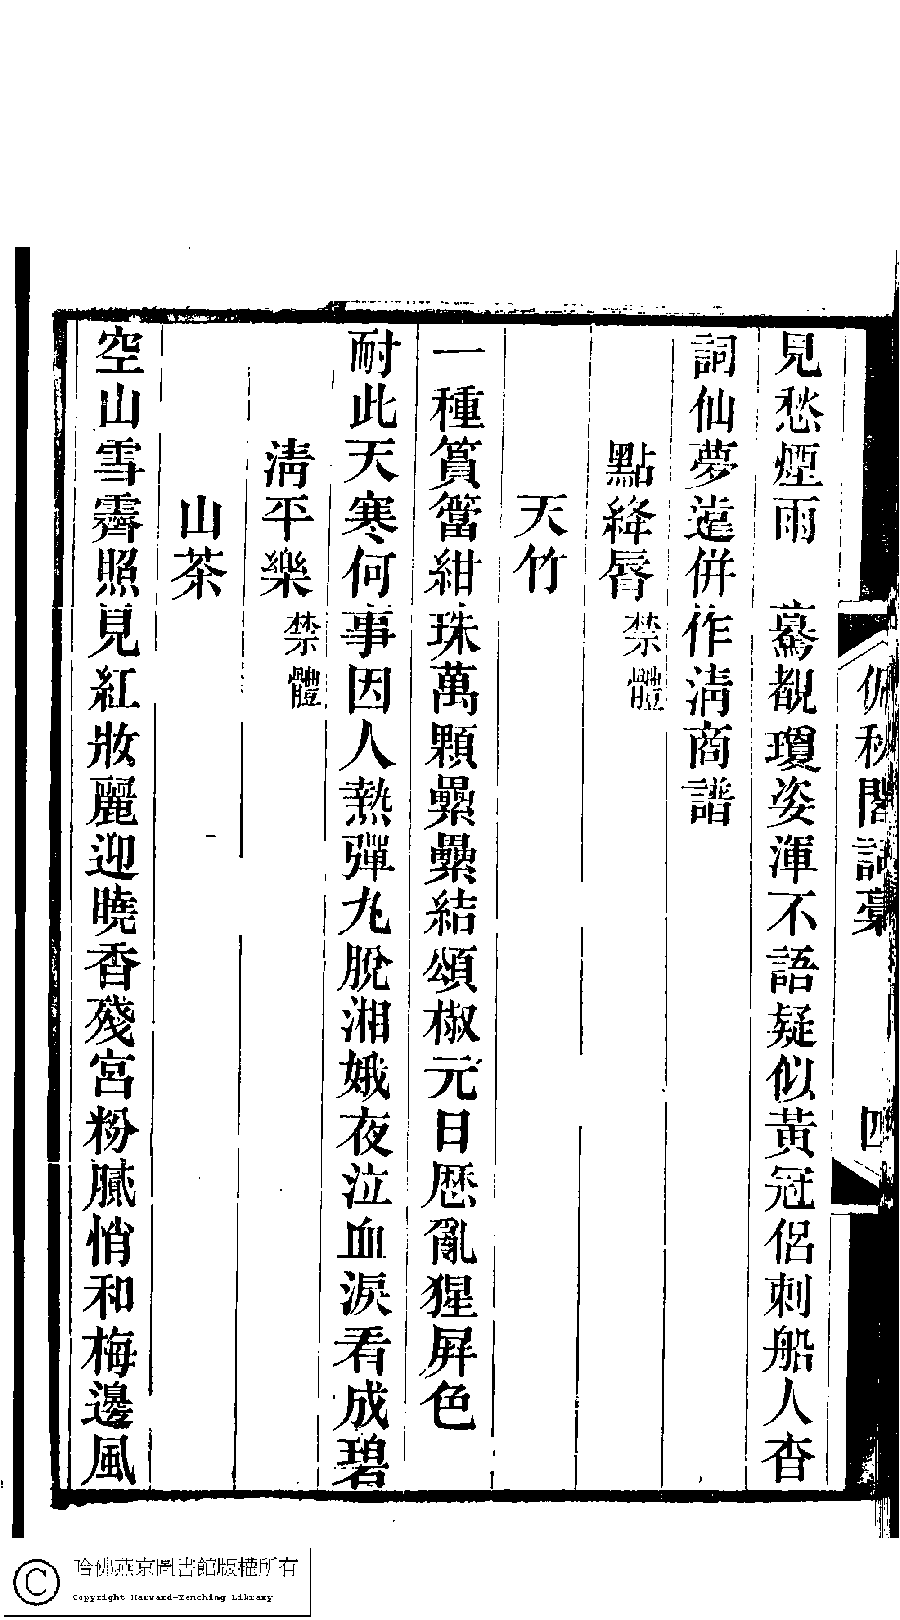 見愁煙雨　驀覩瓊姿渾不語疑似黃冠侶刺船人杳
詞仙夢遠併作淸商譜
點絳脣禁體
天竹
一種篔簹紺珠萬顆纍纍結頌椒元日歷亂猩屛色
耐此天寒何事因人熱彈丸脫湘娥夜泣血淚看成碧
淸平樂禁體
山茶
空山雪霽照見紅妝麗迎曉香殘宮粉膩悄和梅邊風
秋閣詞藁
四
哈佛燕京圖書館版權所有
Copyright Harvard-Yenching Library